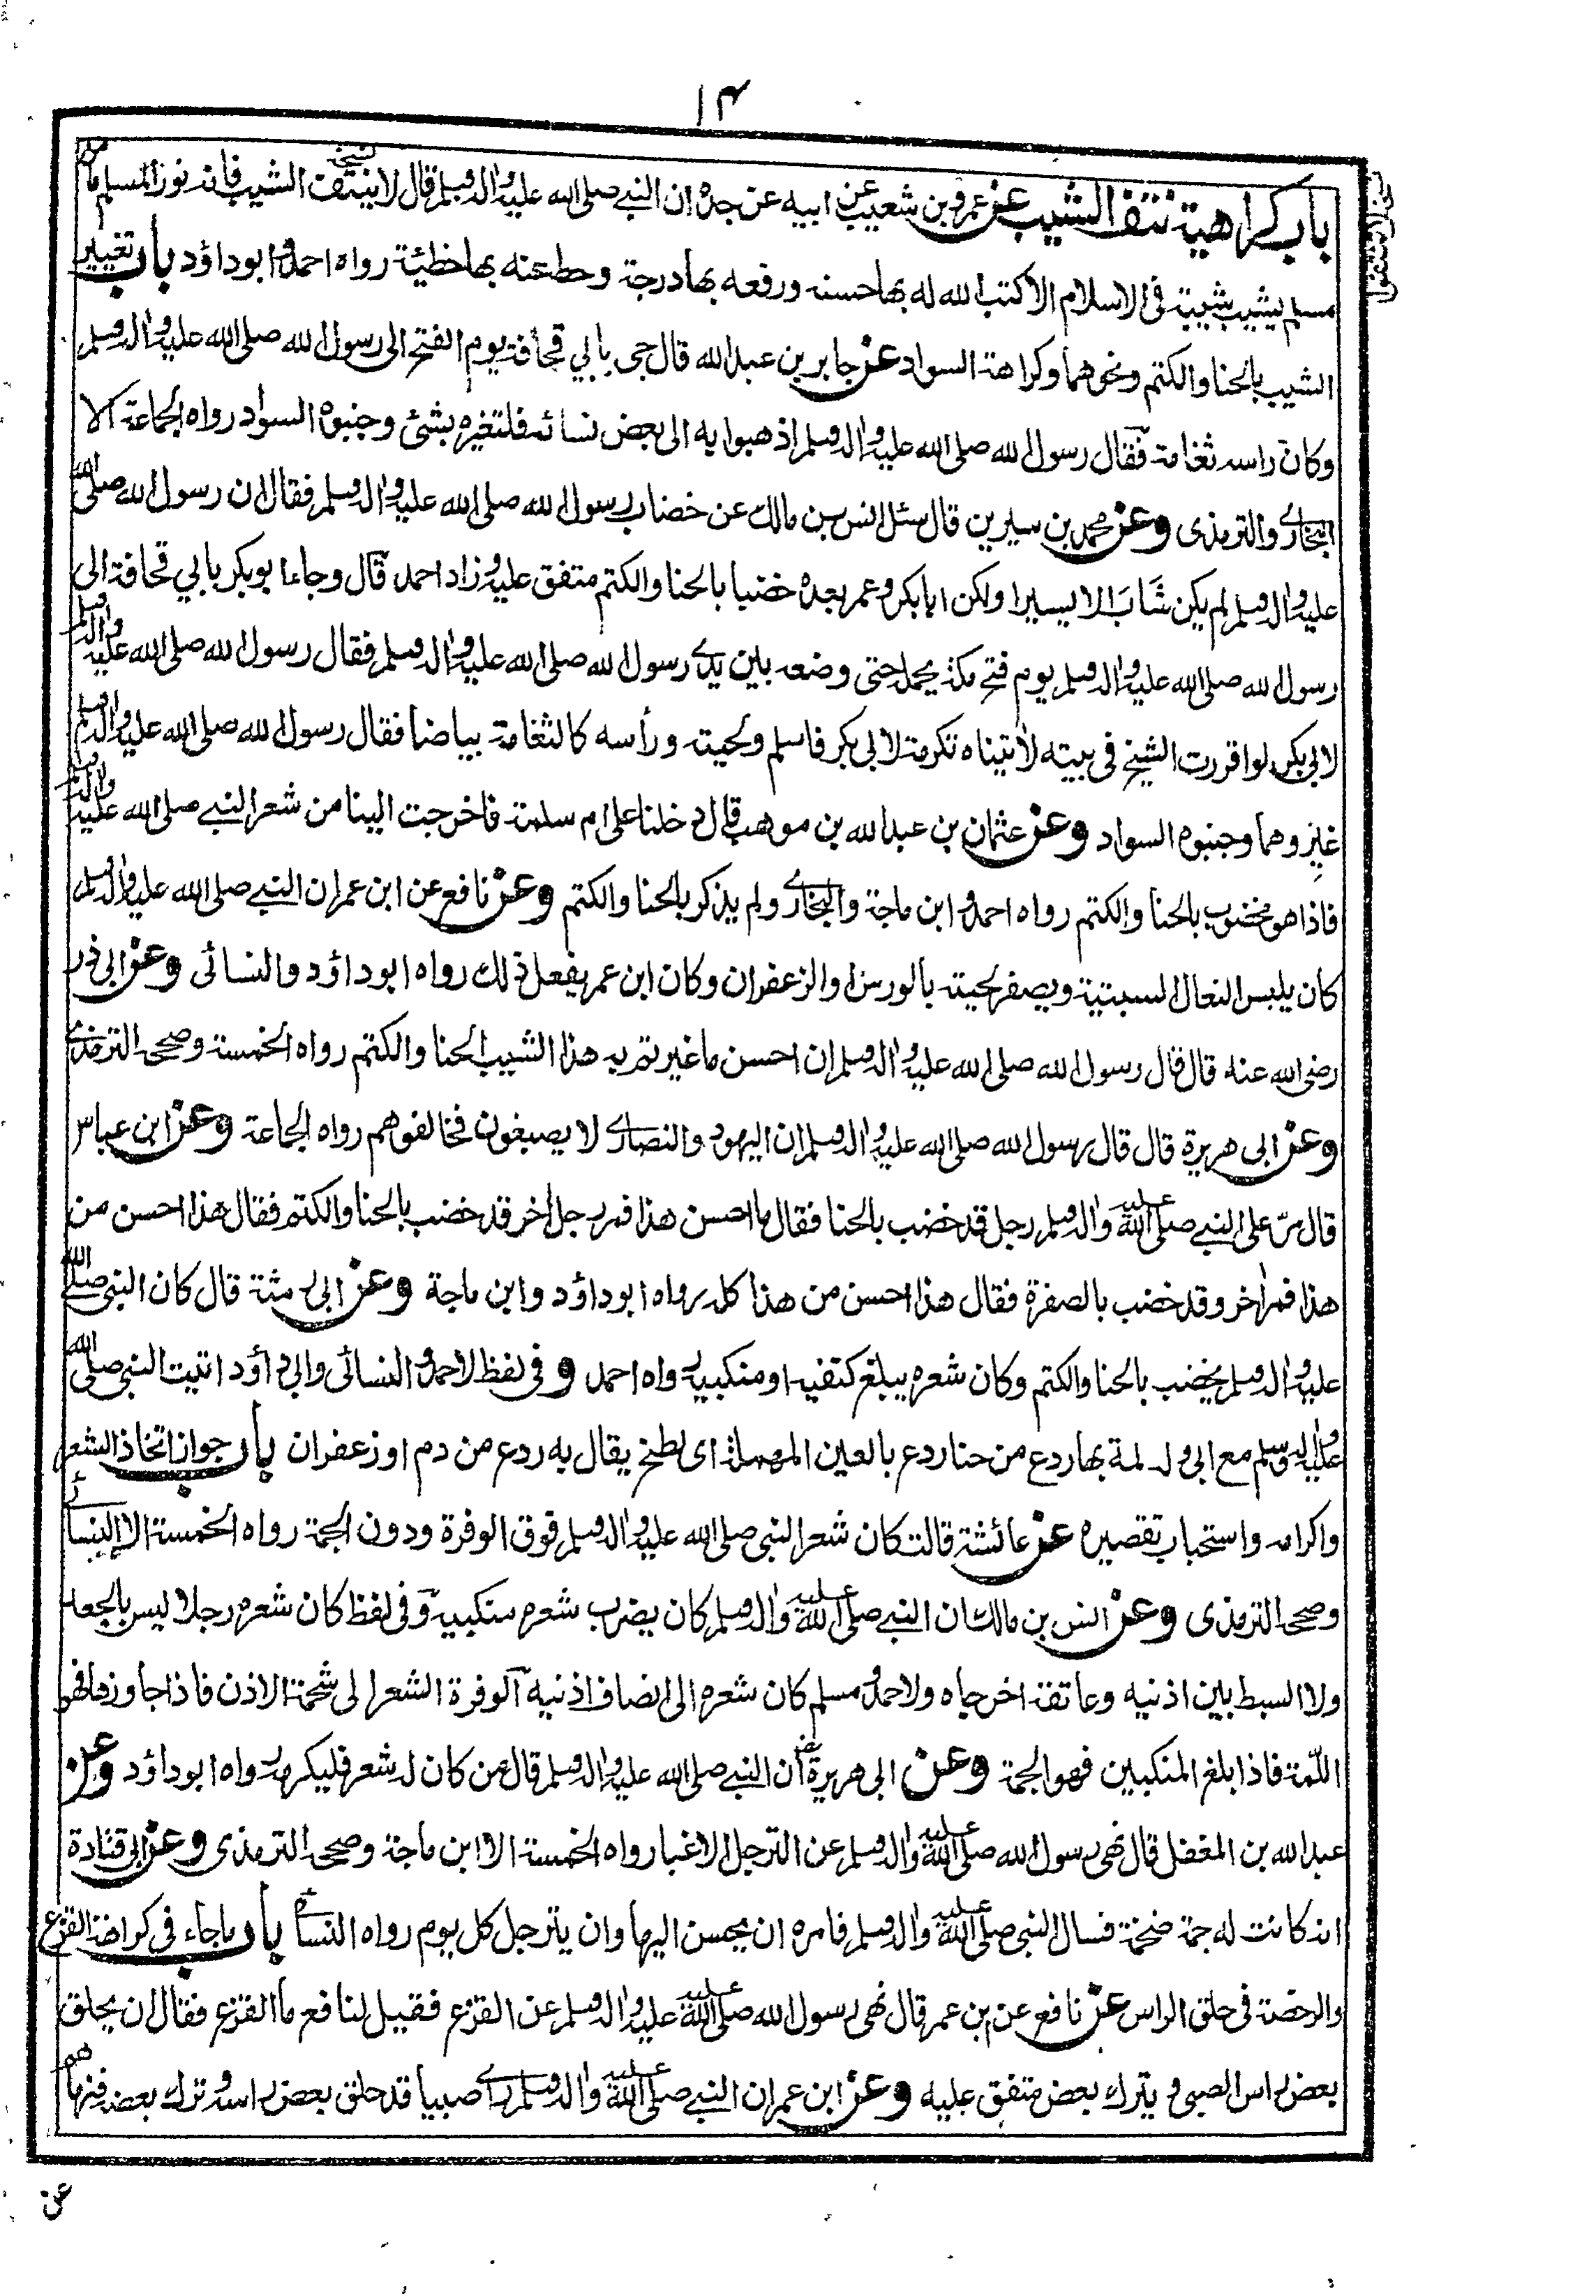 ١٤
باب كراهية نتف الشيب عن عمرو بن شعيب عن ابيه عن جده ان النبي صلى الله عليه واله وسلم قال لا ينتف الشيب فانه نور المسلم ما من
مسلم يشيب شيبة فى الاسلام الا كتب الله له بها حسنه ورفعه بها درجة وحط عنه بها خطئية رواه احمد وابوداؤد باب تغيير
الشيب بالحنا والكتم ونحوهما وكراهة السواد عن جابر بن عبدالله قال جى بابي قحافة يوم الفتح الى رسول الله صلى الله عليه واله وسلم
وكان راسه ثغامة فقال رسول الله صلى الله عليه واله وسلم اذهبوا به الى بعض نسائه فلتغيره بشئ وجنبوه السواد رواه الجماعة الا
البخارى والترمذى وعن محمد بن سيرين قال سئل انس بن مالك عن خضاب رسول الله صلى الله عليه واله وسلم فقال ان رسول الله صلى الله
عليه واله وسلم لم يكن شَابَ الا يسيرا ولكن ابابكر وعمر بعده خضبا بالحنا والكتم متفق عليه وزاد احمد قال وجاء ابوبكر بابي قحافة الى
رسول الله صلى الله عليه واله وسلم يوم فتح مكة يحمله حتى وضعه بين يدى رسول الله صلى الله عليه واله وسلم فقال رسول الله صلى الله عليه واله وسلم
لابى بكر لو اقررت الشيخ فى بيته لاتيناه تكرمة لابى بكر فاسلم ولحيته ورأسه كالثغامة بياضا فقال رسول الله صلى الله عليه واله وسلم
غيروهما وجنبوه السواد وعن عثمان بن عبدالله بن موهب قال دخلنا على ام سلمة فاخرجت الينا من شعر النبي صلى الله عليه واله وسلم
فاذا هو مخضوب بالحنا والكتم رواه احمد وابن ماجة والبخارى ولم يذكر بالحنا والكتم وعن نافع عن ابن عمر ان النبي صلى الله عليه واله وسلم
كان يلبس النعال السبتية ويصفر لحيته بالورس والزعفران وكان ابن عمر يفعل ذلك رواه ابوداؤد والنسائى وعن ابى ذر
رضى الله عنه قال قال رسول الله صلى الله عليه واله وسلم ان احسن ما غيرتم به هذا الشيب الحنا والكتم رواه الخمسة وصححه الترمذى
وعن ابى هريرة قال قال رسول الله صلى الله عليه واله وسلم ان اليهود والنصارى لا يصبغون فخالفوهم رواه الجماعة وعن ابن عباس
قال مرّ على النبي صلى الله عليه واله وسلم رجل قد خضب بالحنا فقال ما احسن هذا فمر رجل اخر قد خضب بالحنا والكتم فقال هذا احسن من
هذا فمر اخر وقد خضب بالصفرة فقال هذا احسن من هذا كله رواه ابوداؤد وابن ماجة وعن ابى رمثة قال كان النبى صلى الله
عليه واله وسلم يخضب بالحنا والكتم وكان شعره يبلغ كتفيه او منكبيه رواه احمد وفى لفظ لاحمد والنسائى وابى داؤد اتيت النبى صلى الله
عليه واله وسلم مع ابى وله لمة بها ردع من حنا ردع بالعين المهملة اى لطخ يقال به ردع من دم او زعفران باب جواز اتخاذ الشعر
واكرامه واستحباب تقصيره عن عائشة قالت كان شعر النبى صلى الله عليه واله وسلم فوق الوفرة ودون الجمة رواه الخمسة الا النسائى
وصححه الترمذى وعن انس بن مالك ان النبي صلى الله عليه واله وسلم كان يضرب شعره منكبيه وفى لفظ كان شعره رجلا ليس بالجعد
ولا السبط بين اذنيه وعاتقه اخرجاه ولاحمد ومسلم كان شعره الى انصاف اذنيه الوفرة الشعر الى شحمة الاذن فاذا جاوزها فهو
اللّمة فاذا بلغ المنكبين فهو الجمة وعن ابى هريرة ان النبي صلى الله عليه واله وسلم قال من كان له شعر فليكرمه رواه ابوداؤد وعن
عبدالله بن المغفل قال نهى رسول الله صلى الله عليه واله وسلم عن الترجل الا غبا رواه الخمسة الا ابن ماجة وصححه الترمذى وعن ابى قتادة
انه كانت له جمة ضخمة فسال النبى صلى الله عليه واله وسلم فامره ان يحسن اليها وان يترجل كل يوم رواه النسائى باب ما جاء فى كراهة القزع
والرخصة فى حلق الراس عن نافع عن بن عمر قال نهى رسول الله صلى الله عليه واله وسلم عن القزع فقيل لنافع ما القزع فقال ان يحلق
بعض راس الصبى ويترك بعض متفق عليه وعن ابن عمر ان النبي صلى الله عليه واله وسلم راى صبيا قد حلق بعض راسه وترك بعضه فنهاهم
عن